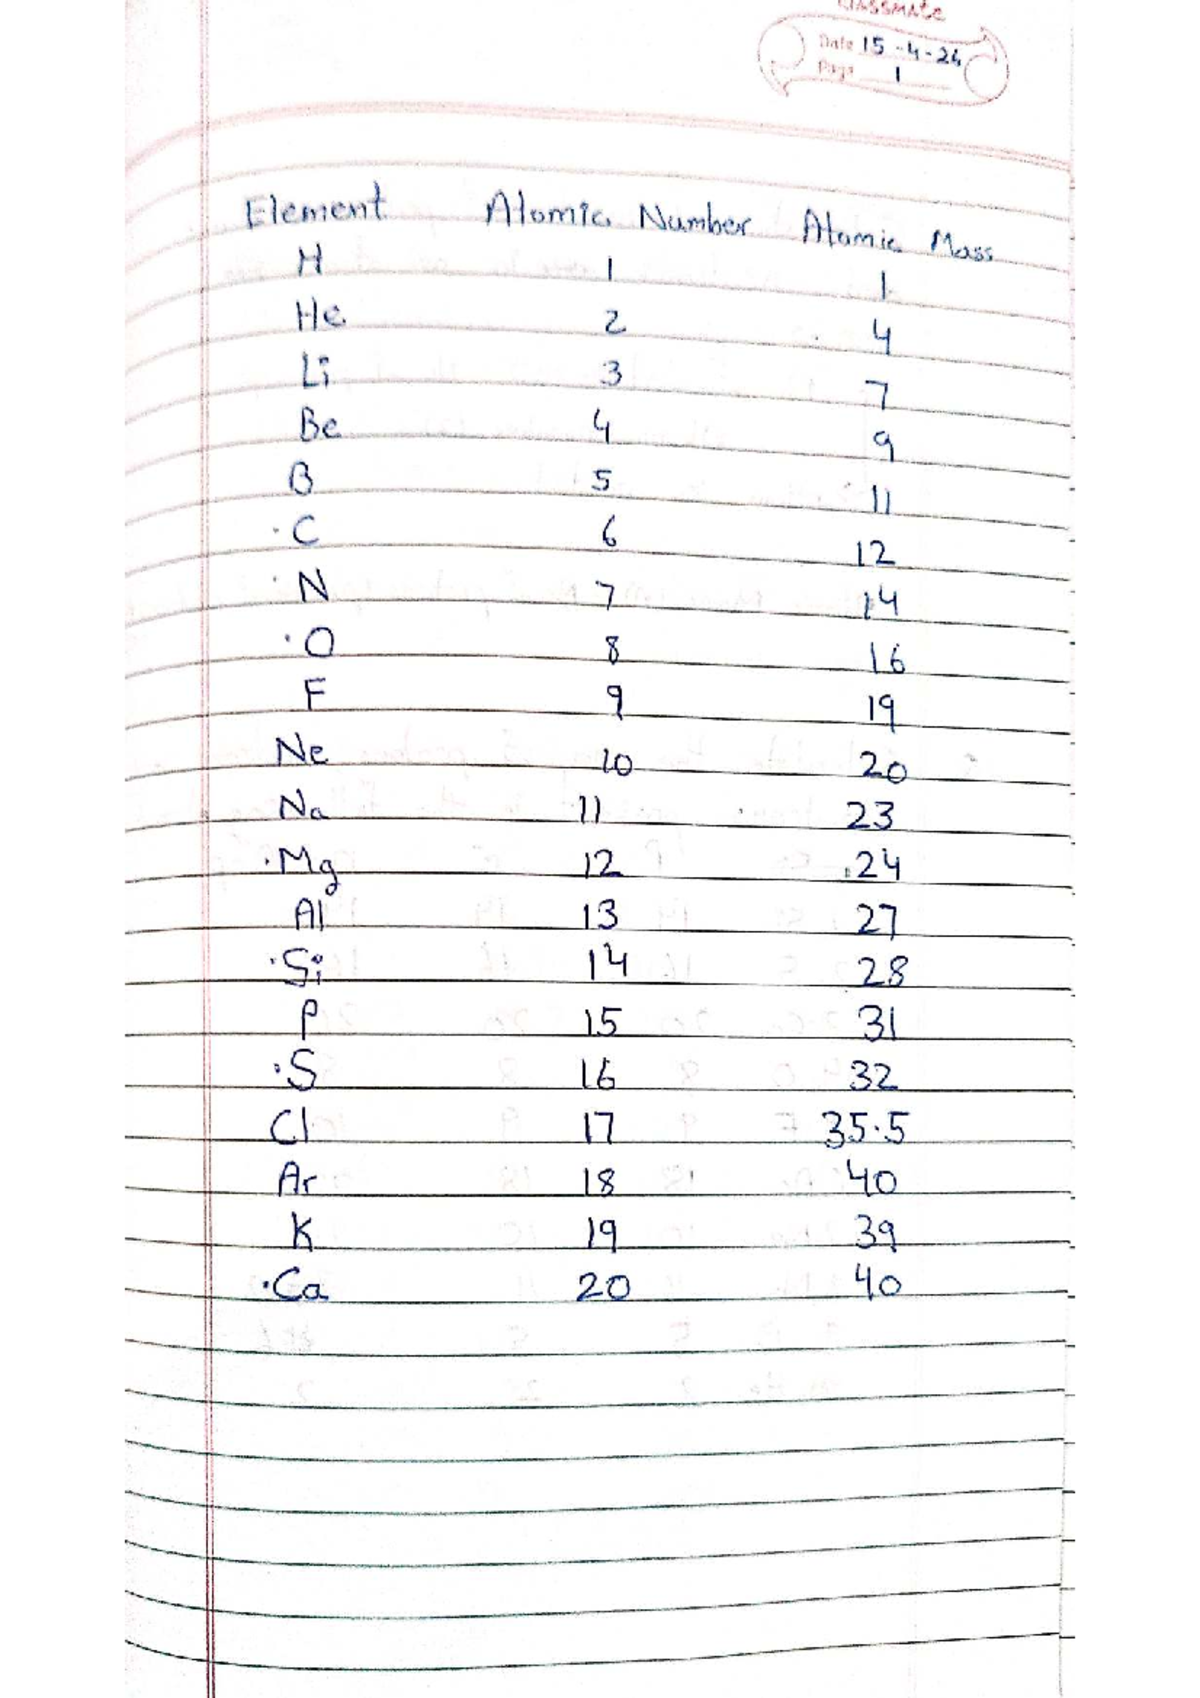 classmate
Date 15-4-24
Page 1
Element Atomic Number Atomic Mass
H 1 1
He 2 4
Li 3 7
Be 4 9
B 5 11
·C 6 12
·N 7 14
·O 8 16
F 9 19
Ne 10 20
Na 11 23
·Mg 12 24
Al 13 27
·Si 14 28
P 15 31
·S 16 32
Cl 17 35.5
Ar 18 40
K 19 39
·Ca 20 40